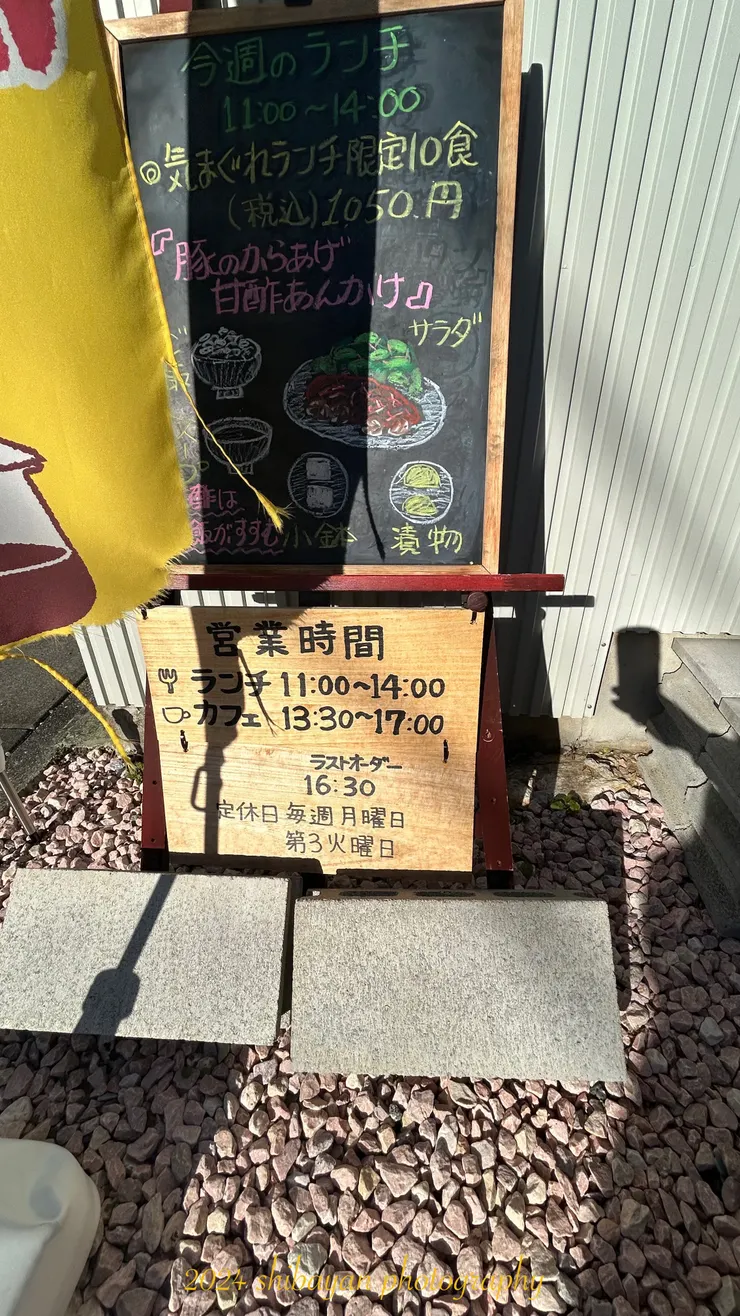 今週のランチ
11:00～14:00
◎気まぐれランチ限定10食
(税込)1050.円
『豚のからあげ
甘酢あんかけ』
サラダ
酢は
飯がすすむ
小鉢
漬物
営業時間
ランチ 11:00～14:00
カフェ 13:30～17:00
ラストオーダー
16:30
定休日 毎週月曜日
第3火曜日
2024 shibayan photography